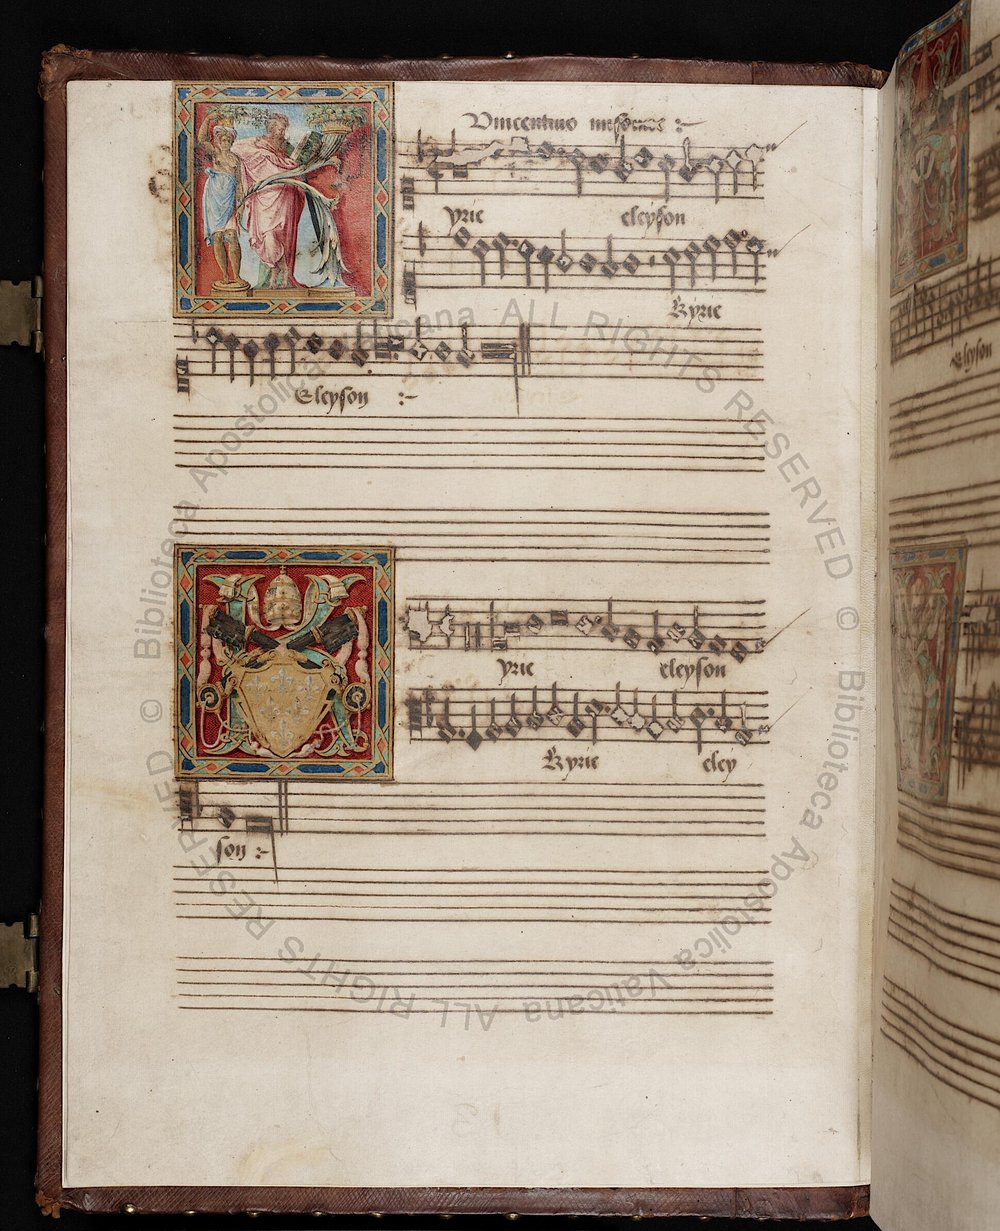 Vincentius misonne :~
yrie eleyson
Kyrie
Eleyson :~
yrie eleyson
Kyrie eley
son :~
Eleyson
© Biblioteca Apostolica Vaticana ALL RIGHTS RESERVED
© Biblioteca Apostolica Vaticana ALL RIGHTS RESERVED